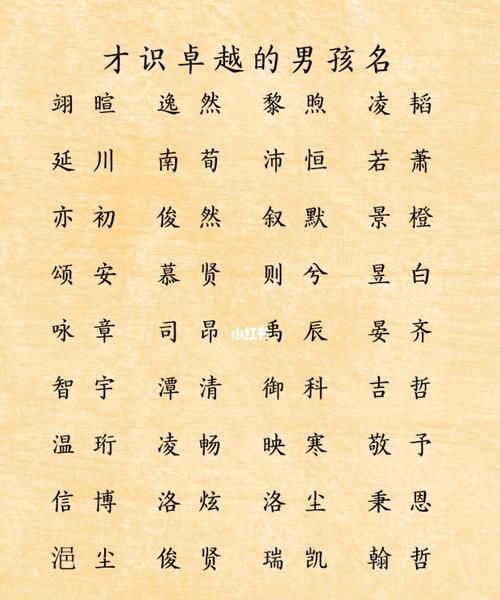 才识卓越的男孩名
翊暄 逸然 黎煦 凌韬
延川 南荀 沛恒 若萧
亦初 俊然 叙默 景橙
颂安 慕贤 则兮 昱白
咏章 司昂 禹辰 晏齐
小红书
智宇 潭清 御科 吉哲
温珩 凌畅 映寒 敬予
信博 洛炫 洛尘 秉恩
浥尘 俊贤 瑞凯 翰哲